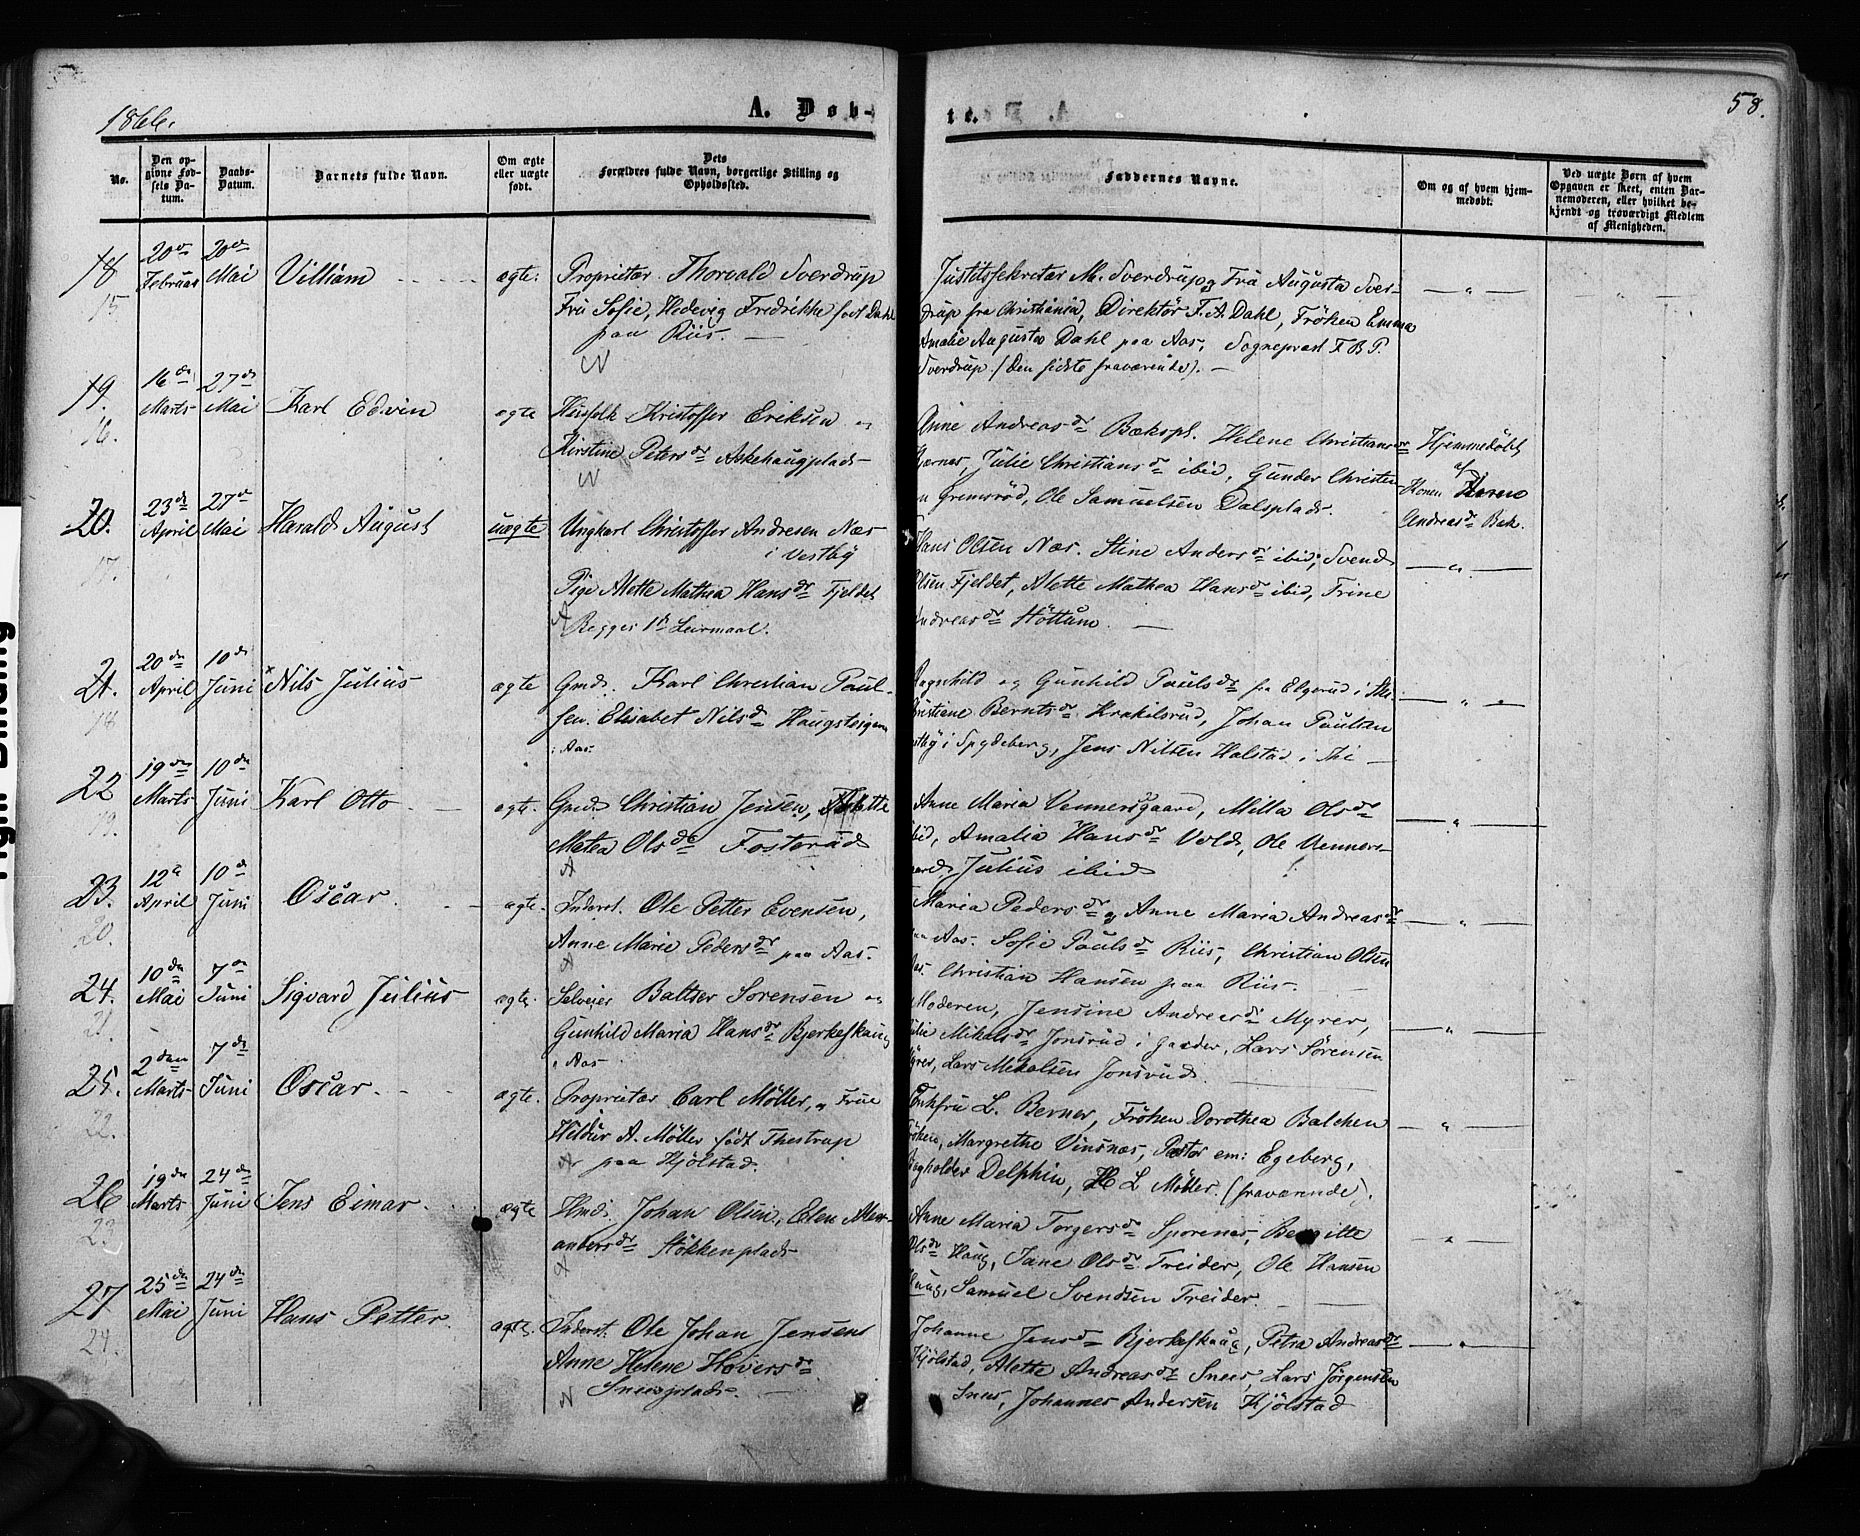 1866.
A. Døb-
te.
58.
No.
Den opgivne Fødsels Datum.
Daabs-Datum.
Barnets fulde Navn.
Om ægte eller uægte født.
Dets Forældres fulde Navn, borgerlige Stilling og Opholdssted.
Faddernes Navne.
Om og af hvem hjemmedøbt.
Ved uægte Børn af hvem Opgaven er skeet, enten Barnemoderen, eller hvilket bekjendt og troværdigt Medlem af Menigheden.
18 20de Februar 20de Mai Villiam ægte: Proprietær Thorvald Sverdrup
15 Fru Sofie, Hedevig Fredrikke født Dahl
paa Riis.
N
Justitssekretær M. Sverdrup og Fru Augusta Sver-
drup fra Christiania, Direktör F. A. Dahl, Fröken Emma
Amalie Augusta Dahl paa Aas, Sogneprest F. B. P.
Sverdrup (den sidste fraværende).
19. 16de Marts 27de Mai Karl Edvin ægte Husfolk Kristoffer Eriksen og
16. Kirstine Petersdr Askehaugplads
N
Anne Andreasdr Bækspl. Helene Christiansdr
Kjærnes, Julie Christiansdr ibid, Gunder Christen
Gremsröd, Ole Samuelsen Dalsplads.
Hjemmedøbt
af
Konen Karen
Andreasdr Bæk.
20. 23de April 27de Mai Harald August uægte Ungkarl Christoffer Andresen Næs
i Vestby
17. Pige Alette Mathea Hansdr Fjeldet
A Begges 1ste Leiermaal.
Hans Olsen Næs. Stine Andersdr ibid, Svend
Olsen Fjeldet, Alette Mathea Hansdr ibid, Trine
Andreasdr Höttum.
21. 20de April 10de Juni Nils Julius ægte Gmd. Karl Christian Paul-
18 sen. Elisabet Nilsdr Haugsteigen
i Aas
Ragnhild og Gunhild Paulsdr fra Elgerud i Ski
Kristiane Berntsdr Krakilsrud, Johan Paulsen
i Spydeberg, Jens Nilsen Halstad i Ski
22 19de Marts 10de Juni Karl Otto ægte. Gmd. Christian Jensen, Alette
19. Matea Olsdr Fosterud
A
Anne Maria Vennersgaard, Milla Olsdr
ibid, Amalia Hansdr Vold, Ole Venners-
gaard, Julius ibid
23. 12te April 10de Juni Oscar ægte. Inderst. Ole Petter Evensen,
20. Anne Marie Pedersdr paa Aas.
A
Maria Pedersdr og Anne Maria Andreasdr
paa Aas. Sofie Paulsdr Riis, Christian Olsen
Aas. Christian Hansen paa Riis.
24. 10de Mai 7de Juni Sigvard Julius ægte. Selveier Baltser Sorensen og
21. Gunhild Maria Hansdr Bjerkeskaug
i Aas
Moderen, Jensine Andreasdr Myrer,
Julie Mikalsdr Jonsrud i Gaarder, Lars Sörensen
Myrer, Lars Mikalsen Jonsrud.
25. 2den Marts 7de Juni Oscar ægte. Proprietær Carl Möller, og Frue
22. Hildur A. Möller født Thestrup
A paa Kjölstad.
Enkfru L. Berner, Fröken Dorothea Balchen
Fröken, Margrethe Vinsnæs, Pastor em: Egeberg,
Bogholder Delphin, H. L. Möller. (fraværende).
26 19de Marts 24de Juni Jens Eimar ægte Hmd. Johan Olsen, Elen Alex-
23 andersdr Stökkenplads
A
Anne Maria Torgersdr Sporenes, Bergitte
Olsdr Haug, Jane Olsdr Treider, Ole Hansen
Haug, Samuel Svendsen Treider.
27 25de Mai 24de Juni Hans Petter. ægte. Inderst. Ole Johan Jensen
24. Anne Helene Hoversdr
Sneisplads.
N
Johanne Jensdr Bjerkeskaug, Petra Andreasdr
Kjölstad, Alette Andreasdr Sneis, Lars Jörgensen
Sneis, Johannes Andersen Kjölstad